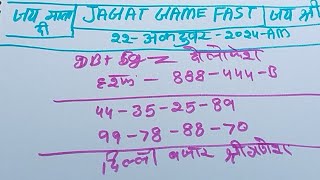 जय माता दी JAGAT GAME FAST जय श्री
२२-अक्टूबर-२०२४-AM
DB+ Gg = त्रैलोक्य
हरूफ - 888-444-B
44-35-25-89
99-78-88-70
दिल्ली बजार श्री गणेश